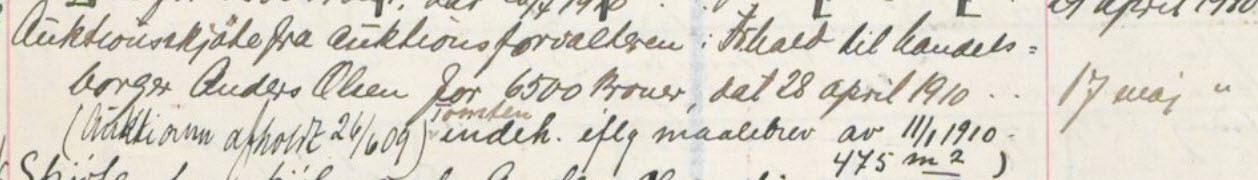 29 april 1910
Auktionsskjöte fra auktionsforvalteren i Ibhald til handels=
borger Anders Olsen for 6500 Kroner, dat 28 april 1910 . . 17 maj "
tomten
(Auktionen afholdt 26/6 09) indeh. eflg maalebrev av 11/1 1910.
475 m2 )